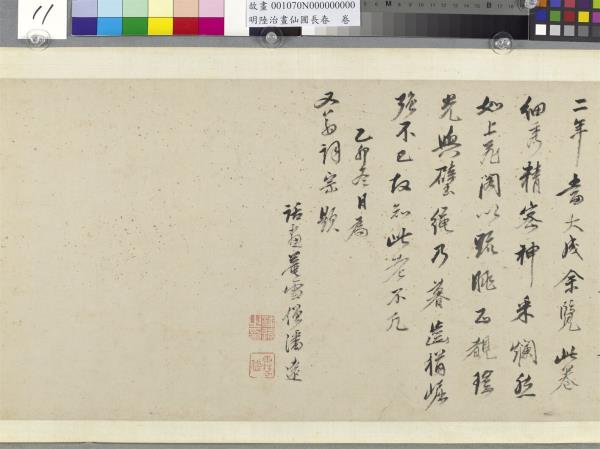 11
故畫 001070N000000000
明陸治畫仙圃長春 卷
二年當大成余覽此卷
細秀精密神采爛然
如上苑閣以
光與璧繩乃暮齒猶崛
強不已故知此老不凡
乙卯冬日為
又翁詞宗題
話畫菴雪僧潘遠